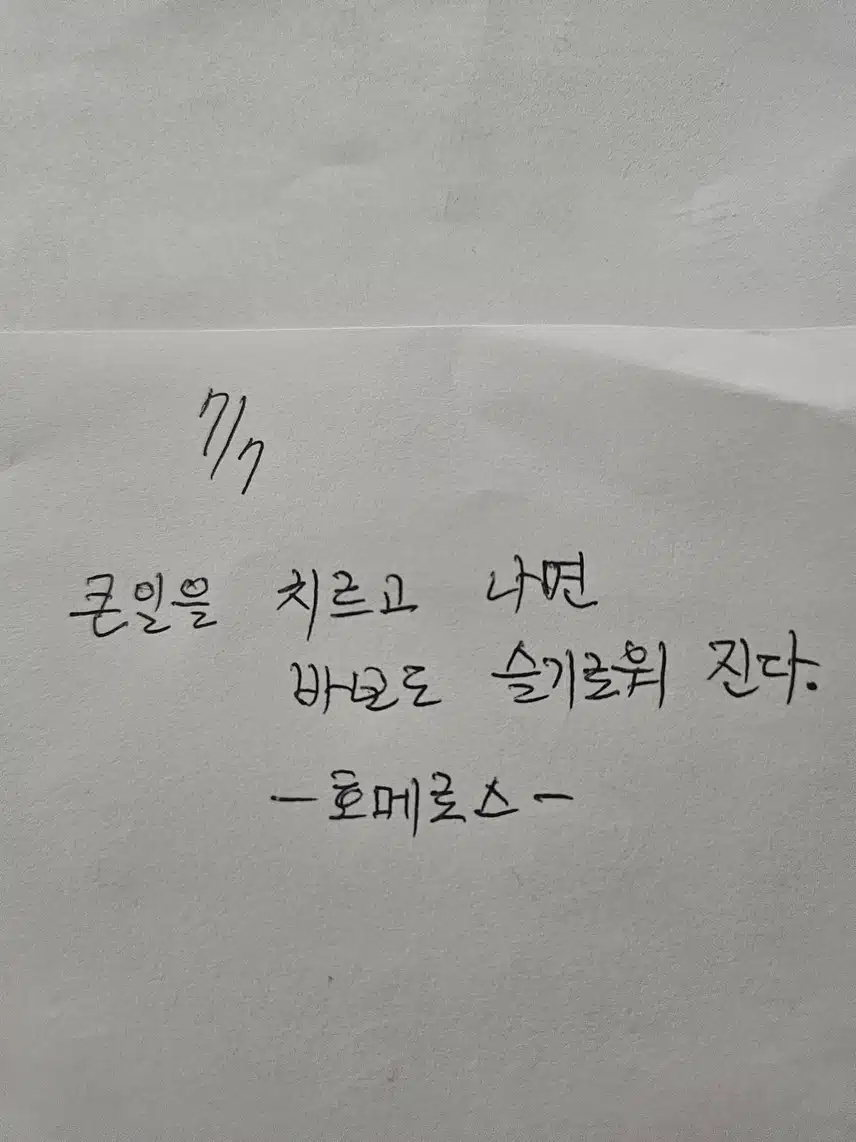 7/7
큰일을 치르고 나면
바보도 슬기로워 진다.
-호메로스-